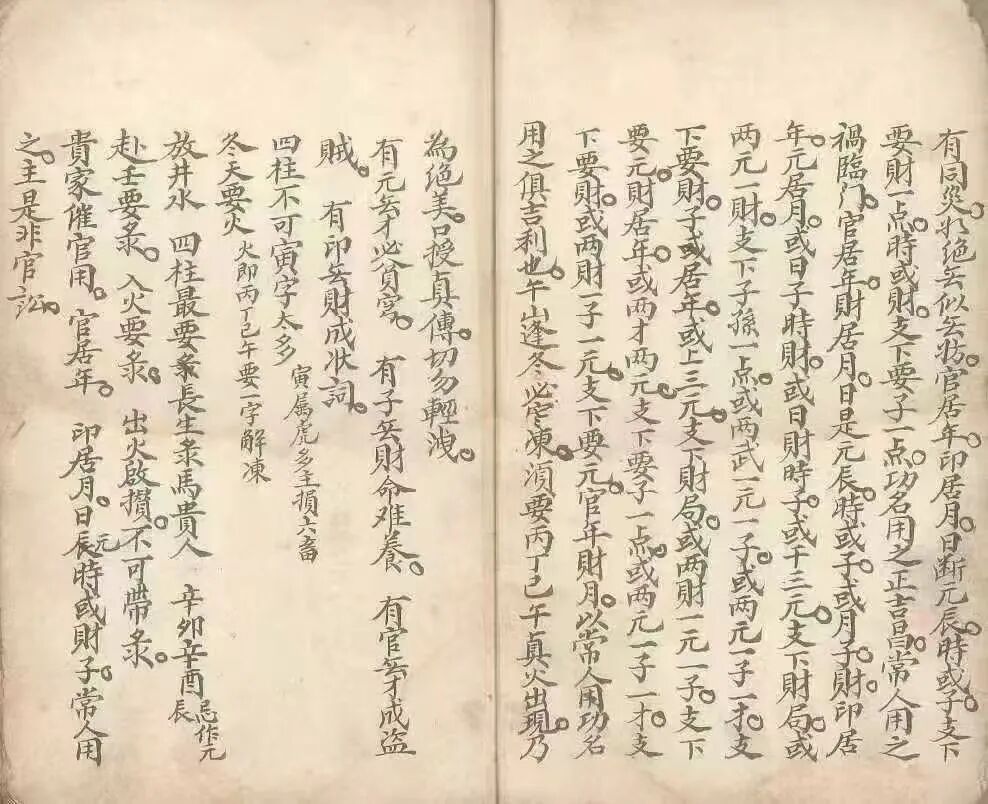 有同災必絕無似無妨。官居年。印居月。日断元辰。時或子支下
要財一点。時或財。支下要子一点。功名用之正吉昌。常人用之
禍臨门。官居年。財居月。日是元辰。時或子。或月子。財印居
年。元居月。或日子時財。或日財時子。或干三元。支下財局。或
两元一財。支下子孫一点。或两武一元一子。或两元一子一才。支
下要財。子或居年。或上三元。支下財局。或两財一元一子。支下
要元。財居年。或两才两元。支下要子一点。或两元一子一才。支
下要財。或两財一子一元。支下要元。官年財月。以常人用功名
用之俱吉利也。午山逢冬必寒凍。須要丙丁巳午真火出現。乃
為绝美。口授真傳。切勿輕洩。
有元無才必貧窮。 有子無財命难養。 有官無才成盗
賊。 有印無財成状詞。
四柱不可寅字太多 寅属虎多主損六畜
冬天要火 火即丙丁巳午要一字解凍
放井水 四柱最要彔長生彔馬貴人 辛卯辛酉忌作元辰
赴壬要彔。 入火要彔。 出火啟攢。不可帶彔。
貴家催官用。 官居年。 印居月。日元辰。時或財子。常人用
之。主是非官訟。